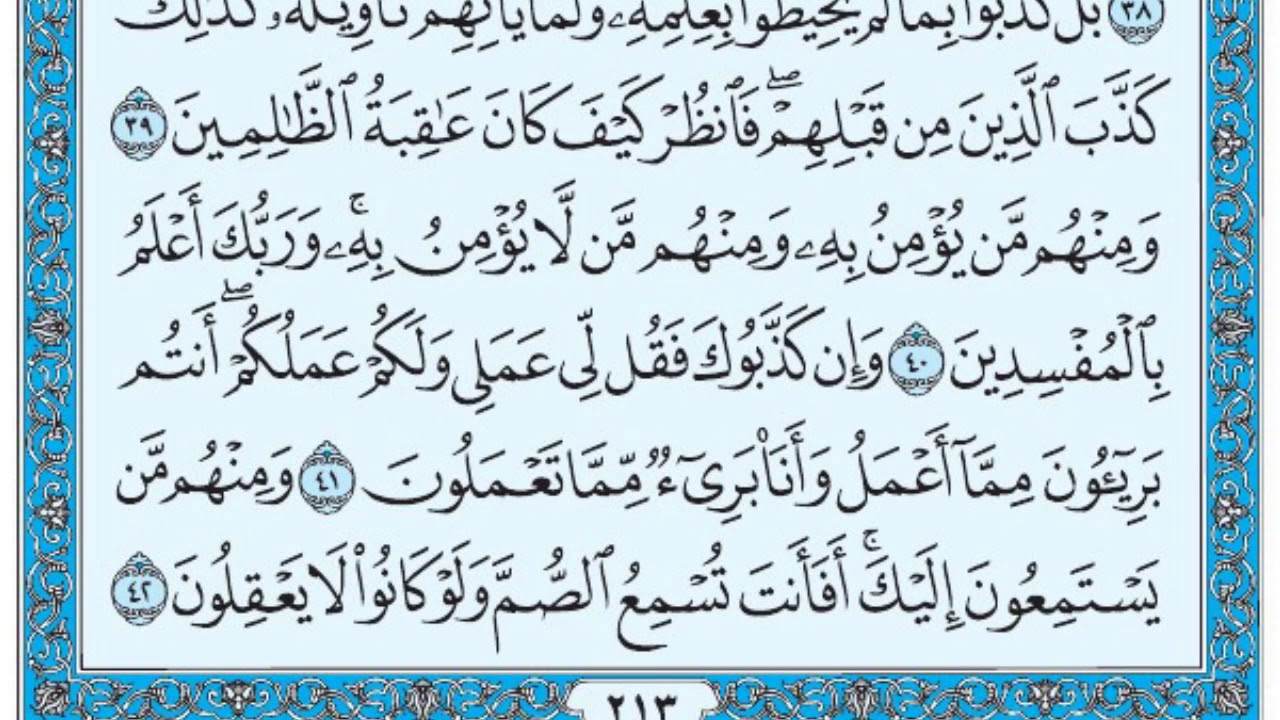 ٣٨ بَلْ كَذَّبُوا۟ بِمَا لَمْ يُحِيطُوا۟ بِعِلْمِهِۦ وَلَمَّا يَأْتِهِمْ تَأْوِيلُهُۥ كَذَٰلِكَ
كَذَّبَ ٱلَّذِينَ مِن قَبْلِهِمْ ۖ فَٱنظُرْ كَيْفَ كَانَ عَٰقِبَةُ ٱلظَّٰلِمِينَ ٣٩
وَمِنْهُم مَّن يُؤْمِنُ بِهِۦ وَمِنْهُم مَّن لَّا يُؤْمِنُ بِهِۦ ۚ وَرَبُّكَ أَعْلَمُ
بِٱلْمُفْسِدِينَ ٤٠ وَإِن كَذَّبُوكَ فَقُل لِّى عَمَلِى وَلَكُمْ عَمَلُكُمْ ۖ أَنتُم
بَرِيٓـُٔونَ مِمَّآ أَعْمَلُ وَأَنَا۠ بَرِىٓءٌ مِّمَّا تَعْمَلُونَ ٤١ وَمِنْهُم مَّن
يَسْتَمِعُونَ إِلَيْكَ ۚ أَفَأَنتَ تُسْمِعُ ٱلصُّمَّ وَلَوْ كَانُوا۟ لَا يَعْقِلُونَ ٤٢
٢١٣